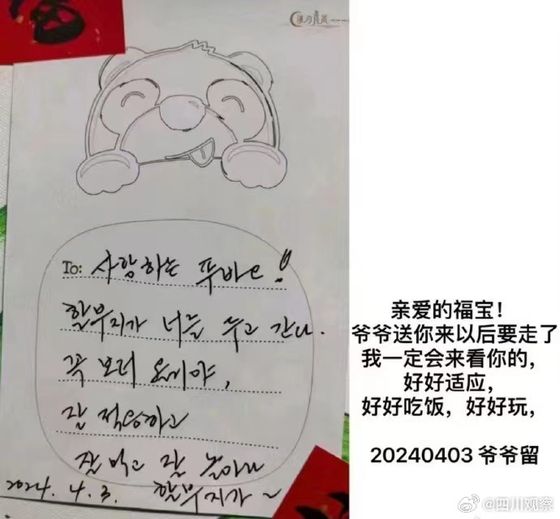 To: 사랑하는 푸바오!
할부지가 너를 두고 간다.
꼭 보러 올게야,
잘 적응하고
잘 먹고 잘 놀아라
2024. 4. 3. 할부지가~
亲爱的福宝!
爷爷送你来以后要走了
我一定会来看你的,
好好适应,
好好吃饭,好好玩,
20240403 爷爷留
@四川观察